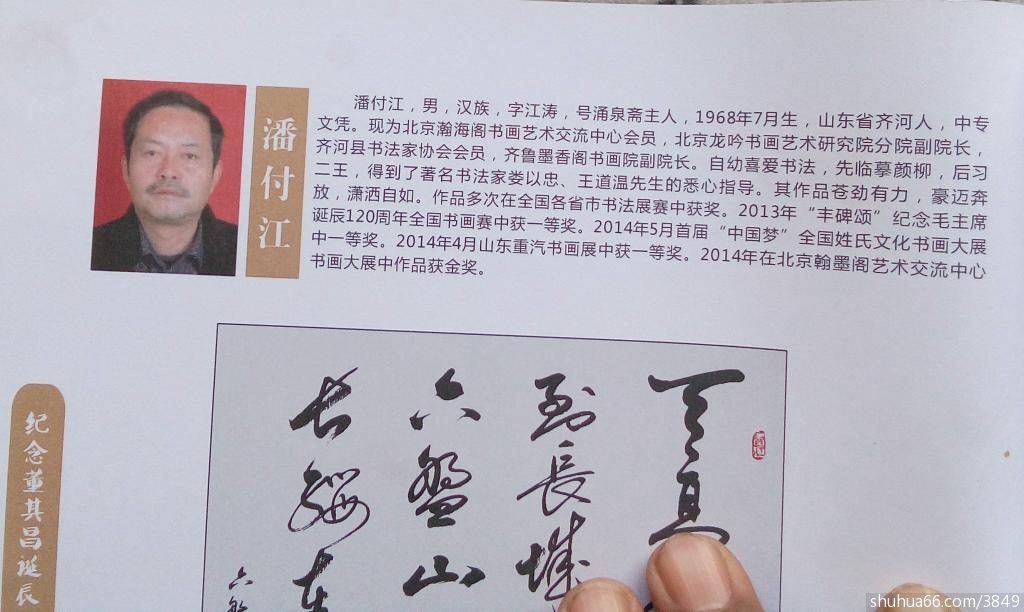 潘付江
潘付江，男，汉族，字江涛，号涌泉斋主人，1968年7月生，山东省齐河人，中专
文凭。现为北京瀚海阁书画艺术交流中心会员，北京龙吟书画艺术研究院分院副院长，
齐河县书法家协会会员，齐鲁墨香阁书画院副院长。自幼喜爱书法，先临摹颜柳，后习
二王，得到了著名书法家娄以忠、王道温先生的悉心指导。其作品苍劲有力，豪迈奔
放，潇洒自如。作品多次在全国各省市书法展赛中获奖。2013年“丰碑颂”纪念毛主席
诞辰120周年全国书画赛中获一等奖。2014年5月首届“中国梦”全国姓氏文化书画大展
中一等奖。2014年4月山东重汽书画展中获一等奖。2014年在北京翰墨阁艺术交流中心
书画大展中作品获金奖。
天高
到長城
六盤山
长缨在
六盤
纪念董其昌诞辰
shuhua66.com/3849